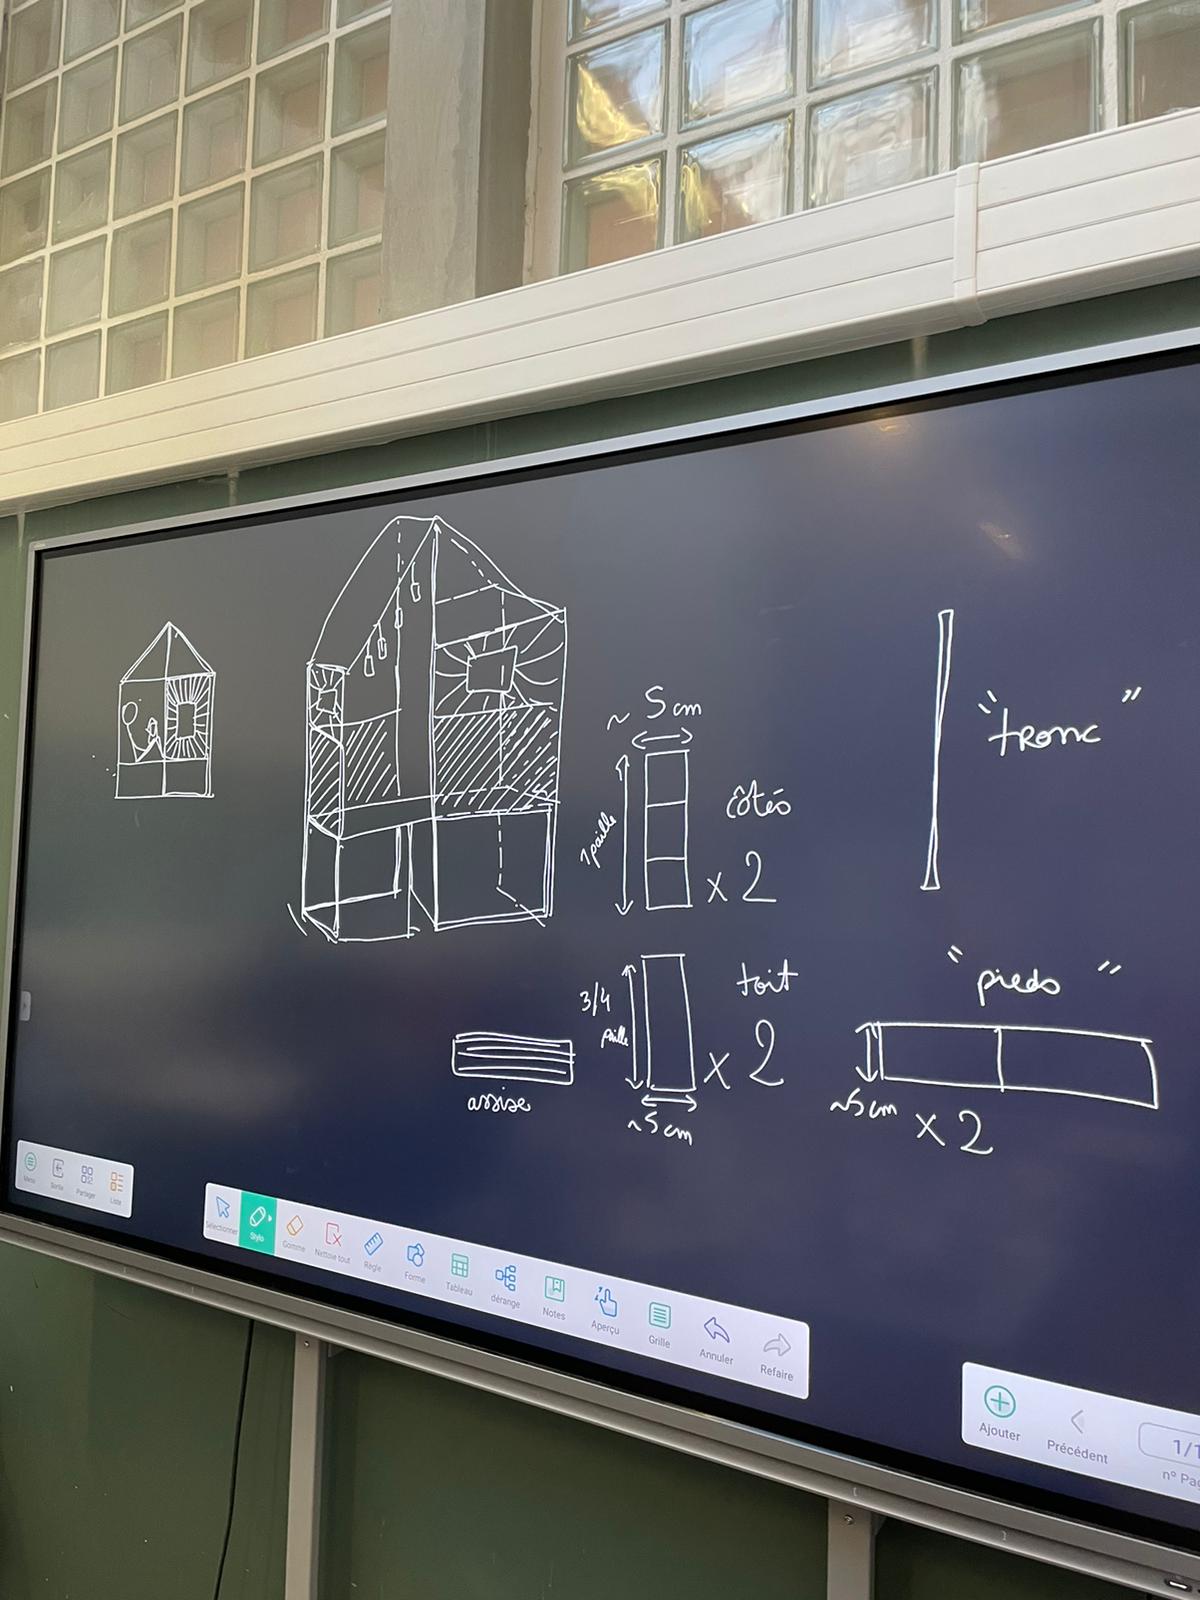 ~ 5 cm
1 paille
côtés
x 2
"tronc"
3/4
paille
toit
x 2
~5cm
assise
"pieds"
~5cm
x 2
Menu
Sortie
Partager
Liste
Sélectionner
Stylo
Gomme
Nettoie tout
Règle
Forme
Tableau
dérange
Notes
Aperçu
Grille
Annuler
Refaire
Ajouter
Précédent
1/1
n° Pag